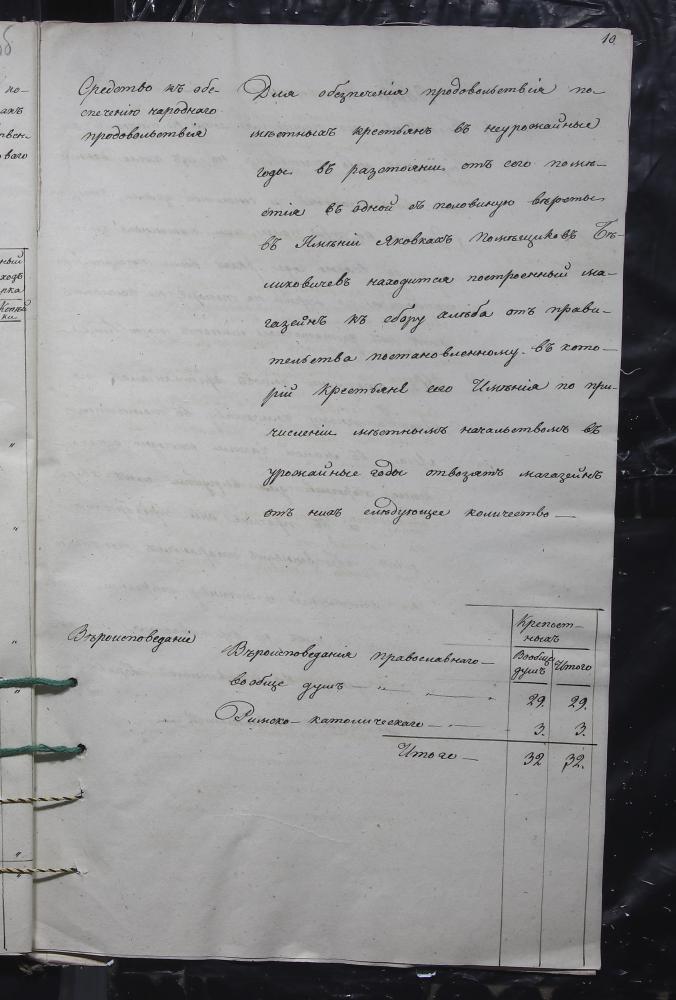 10.
Средство къ обе-
спеченію народнаго
продовольствія
Для обезпеченія продовольствія по-
мѣстныхъ крестьянъ въ неурожайные
годы въ разстояніи отъ сего помѣ-
стія въ одной съ половиную версты
въ Имѣніи Яковкахъ Помѣщиковъ Бѣ-
ликовичевъ находится построенный ма-
газейнъ къ сбору хлѣба отъ прави-
тельства постановленному. въ кото-
рій крестьяне сего Имѣнія по при-
численіи мѣстнымъ начальствомъ въ
урожайные годы отвозятъ магазейнъ
отъ нихъ слѣдующее количество —
Вѣроисповеданіе
Крепост-
ныхъ
Вообще душъ
Итого
Вѣроисповеданія православнаго —
вообще душъ — „ — „ 29. 29.
Римско-католическаго — — 3. 3.
Итого — 32 32.
ный
ходъ
рка
Копѣй
ки